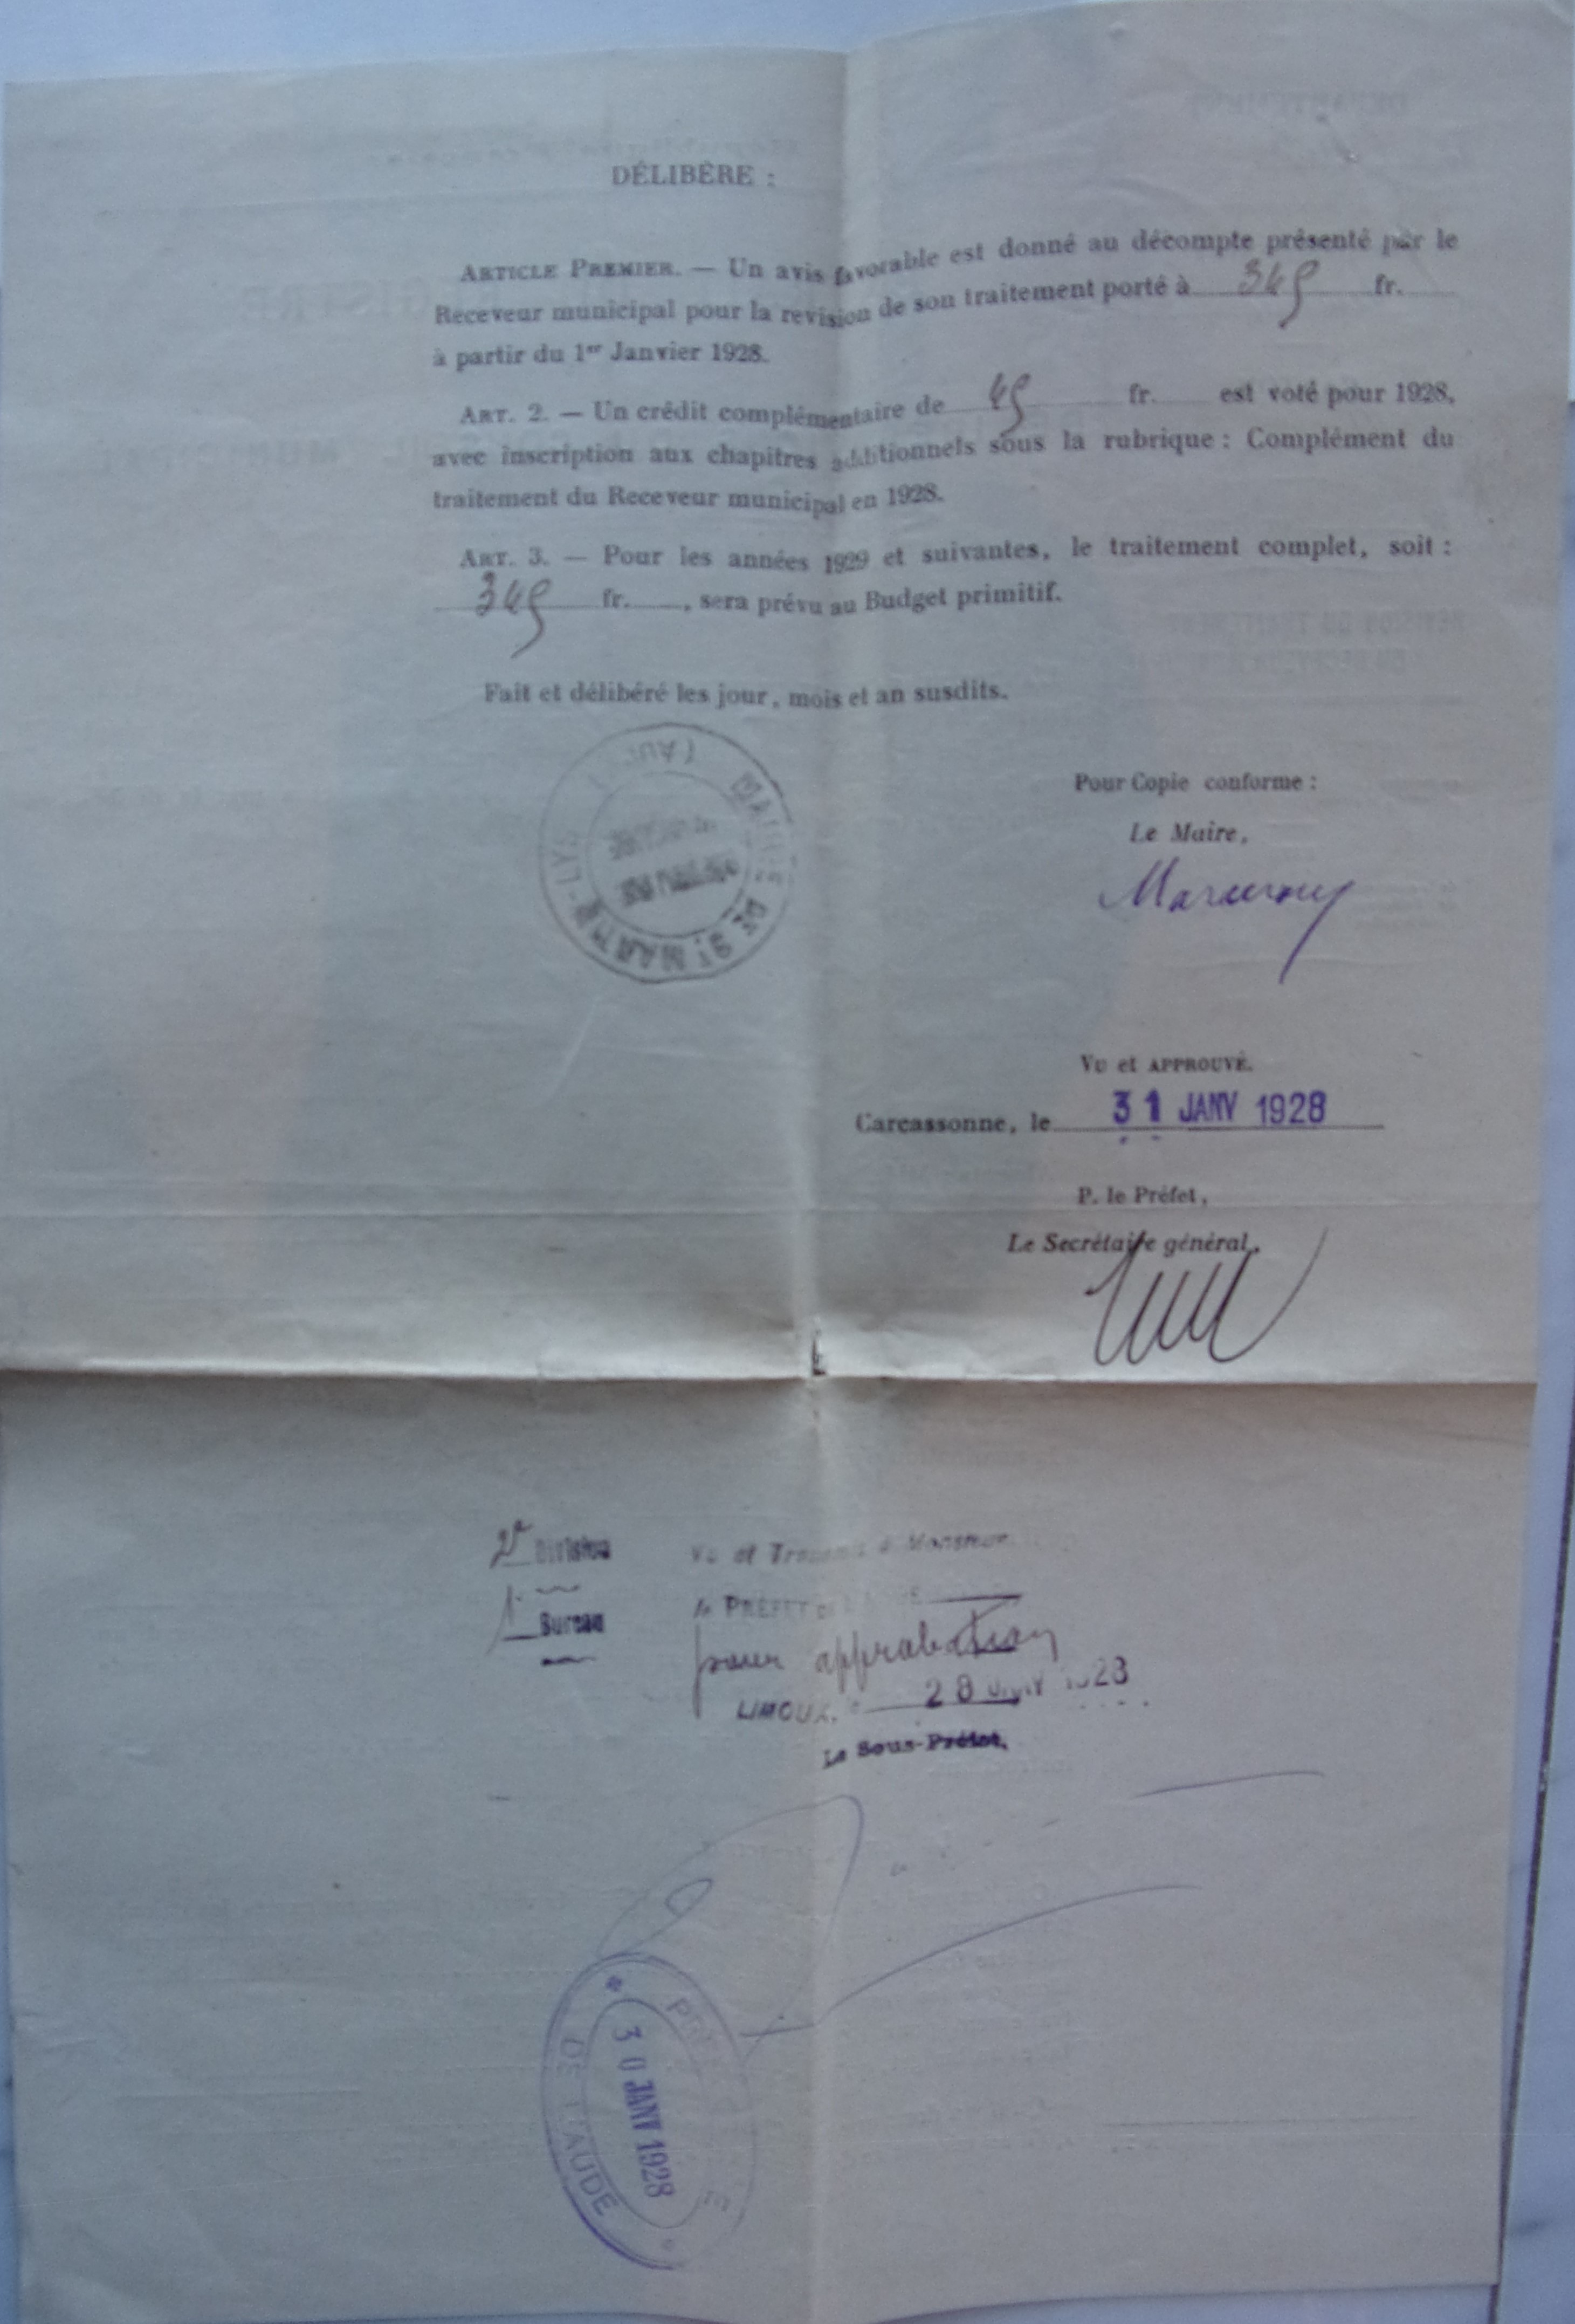 DÉLIBÈRE :
ARTICLE PREMIER. — Un avis favorable est donné au décompte présenté par le
Receveur municipal pour la revision de son traitement porté à 345 fr.
à partir du 1er Janvier 1928.
ART. 2. — Un crédit complémentaire de 45 fr. est voté pour 1928,
avec inscription aux chapitres additionnels sous la rubrique : Complément du
traitement du Receveur municipal en 1928.
ART. 3. — Pour les années 1929 et suivantes, le traitement complet, soit :
345 fr. , sera prévu au Budget primitif.
Fait et délibéré les jour, mois et an susdits.
MAIRIE DE St MARTIN-LYS (AUDE)
Pour Copie conforme :
Le Maire,
Vu et APPROUVÉ.
Carcassonne, le 31 JANV 1928
P. le Préfet,
Le Secrétaire général,
2e Division
1r Bureau
Vu et Transmis à Monsieur
le PRÉFET DE
pour approbation
LIMOUX, 28 JANV 1928
Le Sous-Préfet,
PRÉFECTURE
DE L'AUDE
30 JANV 1928